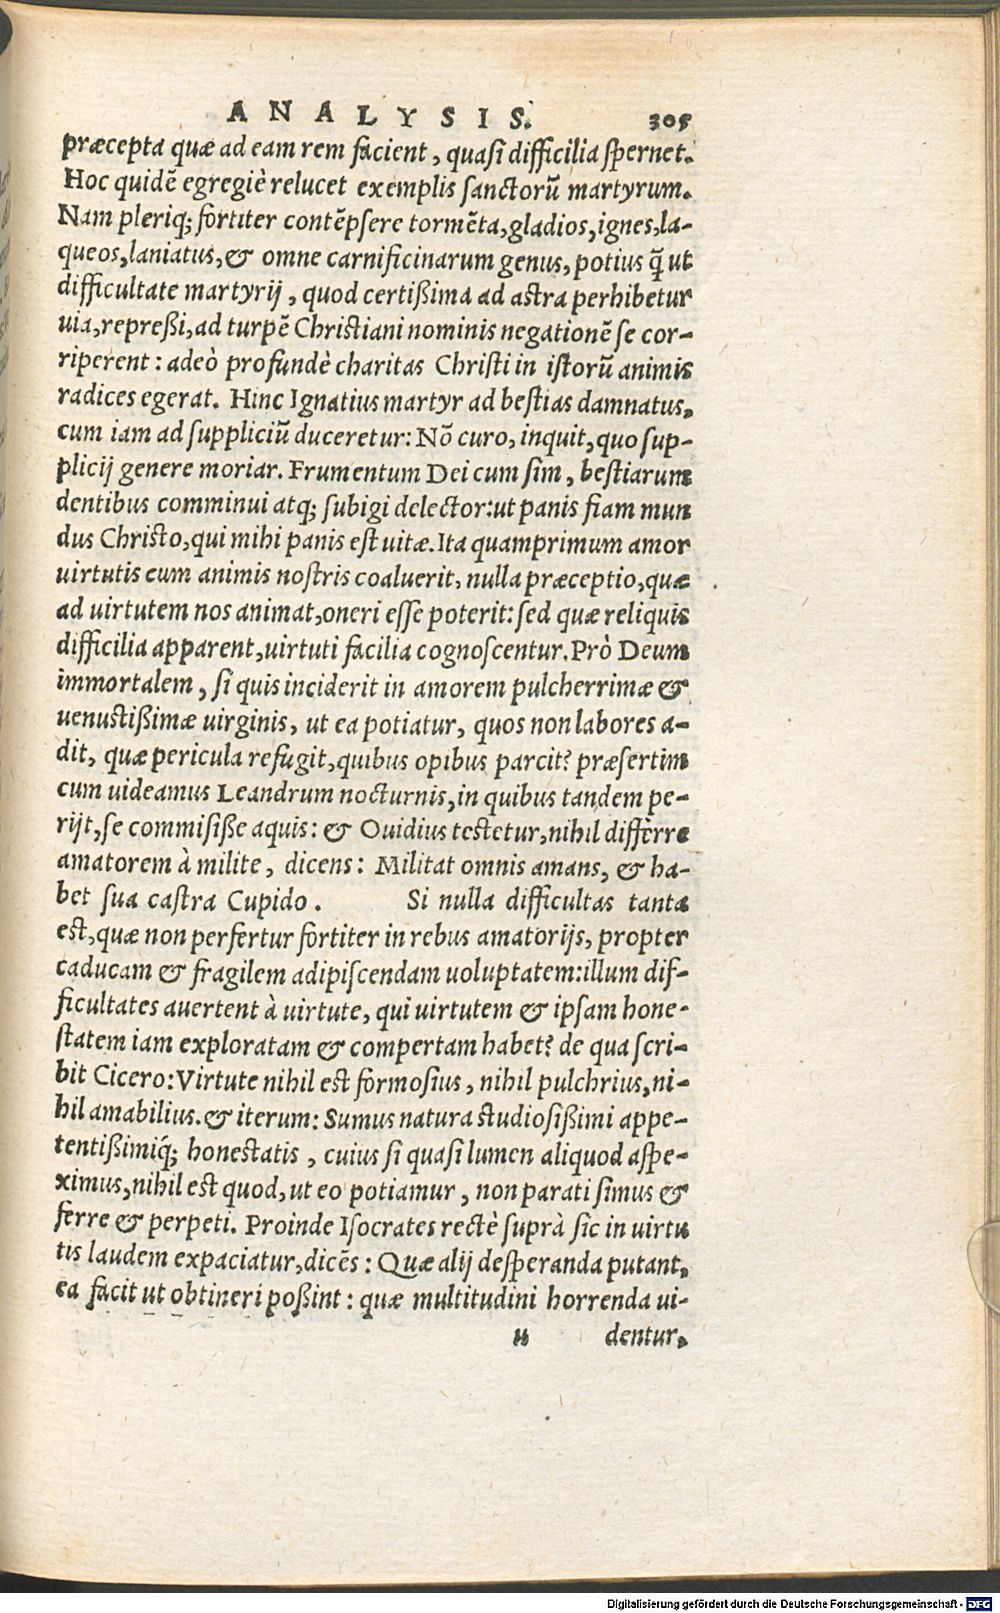 ANALYSIS. 305
præcepta quæ ad eam rem facient, quasi difficilia spernet.
Hoc quidē egregiè relucet exemplis sanctorū martyrum.
Nam pleriq; fortiter contēpsere tormēta, gladios, ignes, la-
queos, laniatus, & omne carnificinarum genus, potius q̃ ut
difficultate martyrij, quod certißima ad astra perhibetur
uia, repreßi, ad turpē Christiani nominis negationē se cor-
riperent: adeò profundè charitas Christi in istorū animis
radices egerat. Hinc Ignatius martyr ad bestias damnatus,
cum iam ad suppliciū duceretur: Nō curo, inquit, quo sup-
plicij genere moriar. Frumentum Dei cum sim, bestiarum
dentibus comminui atq; subigi delector: ut panis fiam mun
dus Christo, qui mihi panis est uitæ. Ita quamprimum amor
uirtutis cum animis nostris coaluerit, nulla præceptio, quæ
ad uirtutem nos animat, oneri esse poterit: sed quæ reliquis
difficilia apparent, uirtuti facilia cognoscentur. Prò Deum
immortalem, si quis inciderit in amorem pulcherrimæ &
uenustißimæ uirginis, ut ea potiatur, quos non labores a-
dit, quæ pericula refugit, quibus opibus parcit? præsertim
cum uideamus Leandrum nocturnis, in quibus tandem pe-
rijt, se commisiße aquis: & Ouidius testetur, nihil differre
amatorem à milite, dicens: Militat omnis amans, & ha-
bet sua castra Cupido. Si nulla difficultas tanta
est, quæ non perfertur fortiter in rebus amatorijs, propter
caducam & fragilem adipiscendam uoluptatem: illum dif-
ficultates auertent à uirtute, qui uirtutem & ipsam hone-
statem iam exploratam & compertam habet? de qua scri-
bit Cicero: Virtute nihil est formosius, nihil pulchrius, ni-
hil amabilius. & iterum: Sumus natura studiosißimi appe-
tentißimiq́; honestatis, cuius si quasi lumen aliquod aspe-
ximus, nihil est quod, ut eo potiamur, non parati simus &
ferre & perpeti. Proinde Isocrates rectè suprà sic in uirtu
tis laudem expaciatur, dicēs: Quæ alij desperanda putant,
ea facit ut obtineri poßint: quæ multitudini horrenda ui-
u dentur,
Digitalisierung gefördert durch die Deutsche Forschungsgemeinschaft - DFG